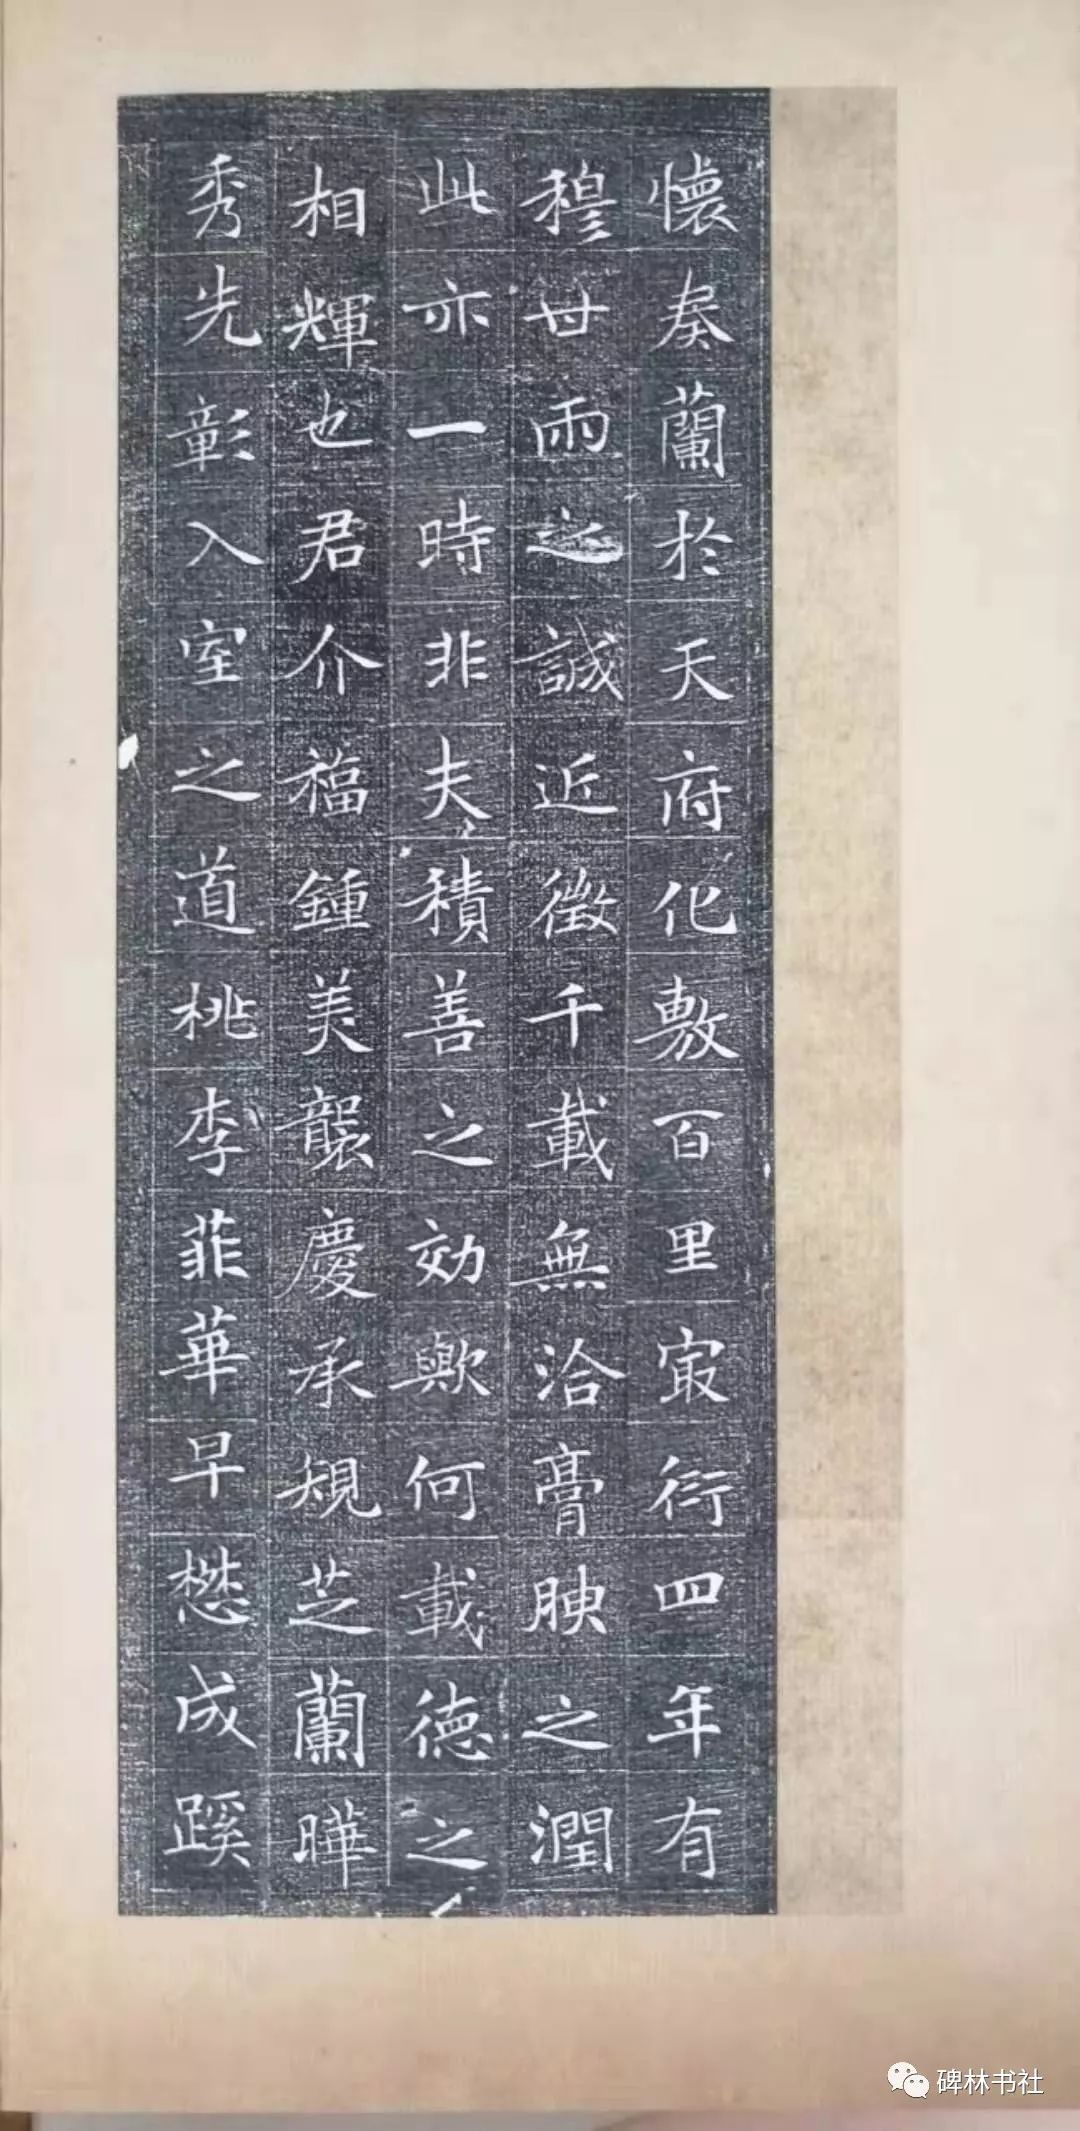 懷奏蘭於天府化敷百里寂衍四年有
穆廿雨之誠近徵千載無洽膏腴之潤
此亦一時非夫積善之効歟何載德之
相輝也君介福鍾美襲慶承規芝蘭曄
秀先彰入室之道桃李菲華早懋成蹊
碑林书社